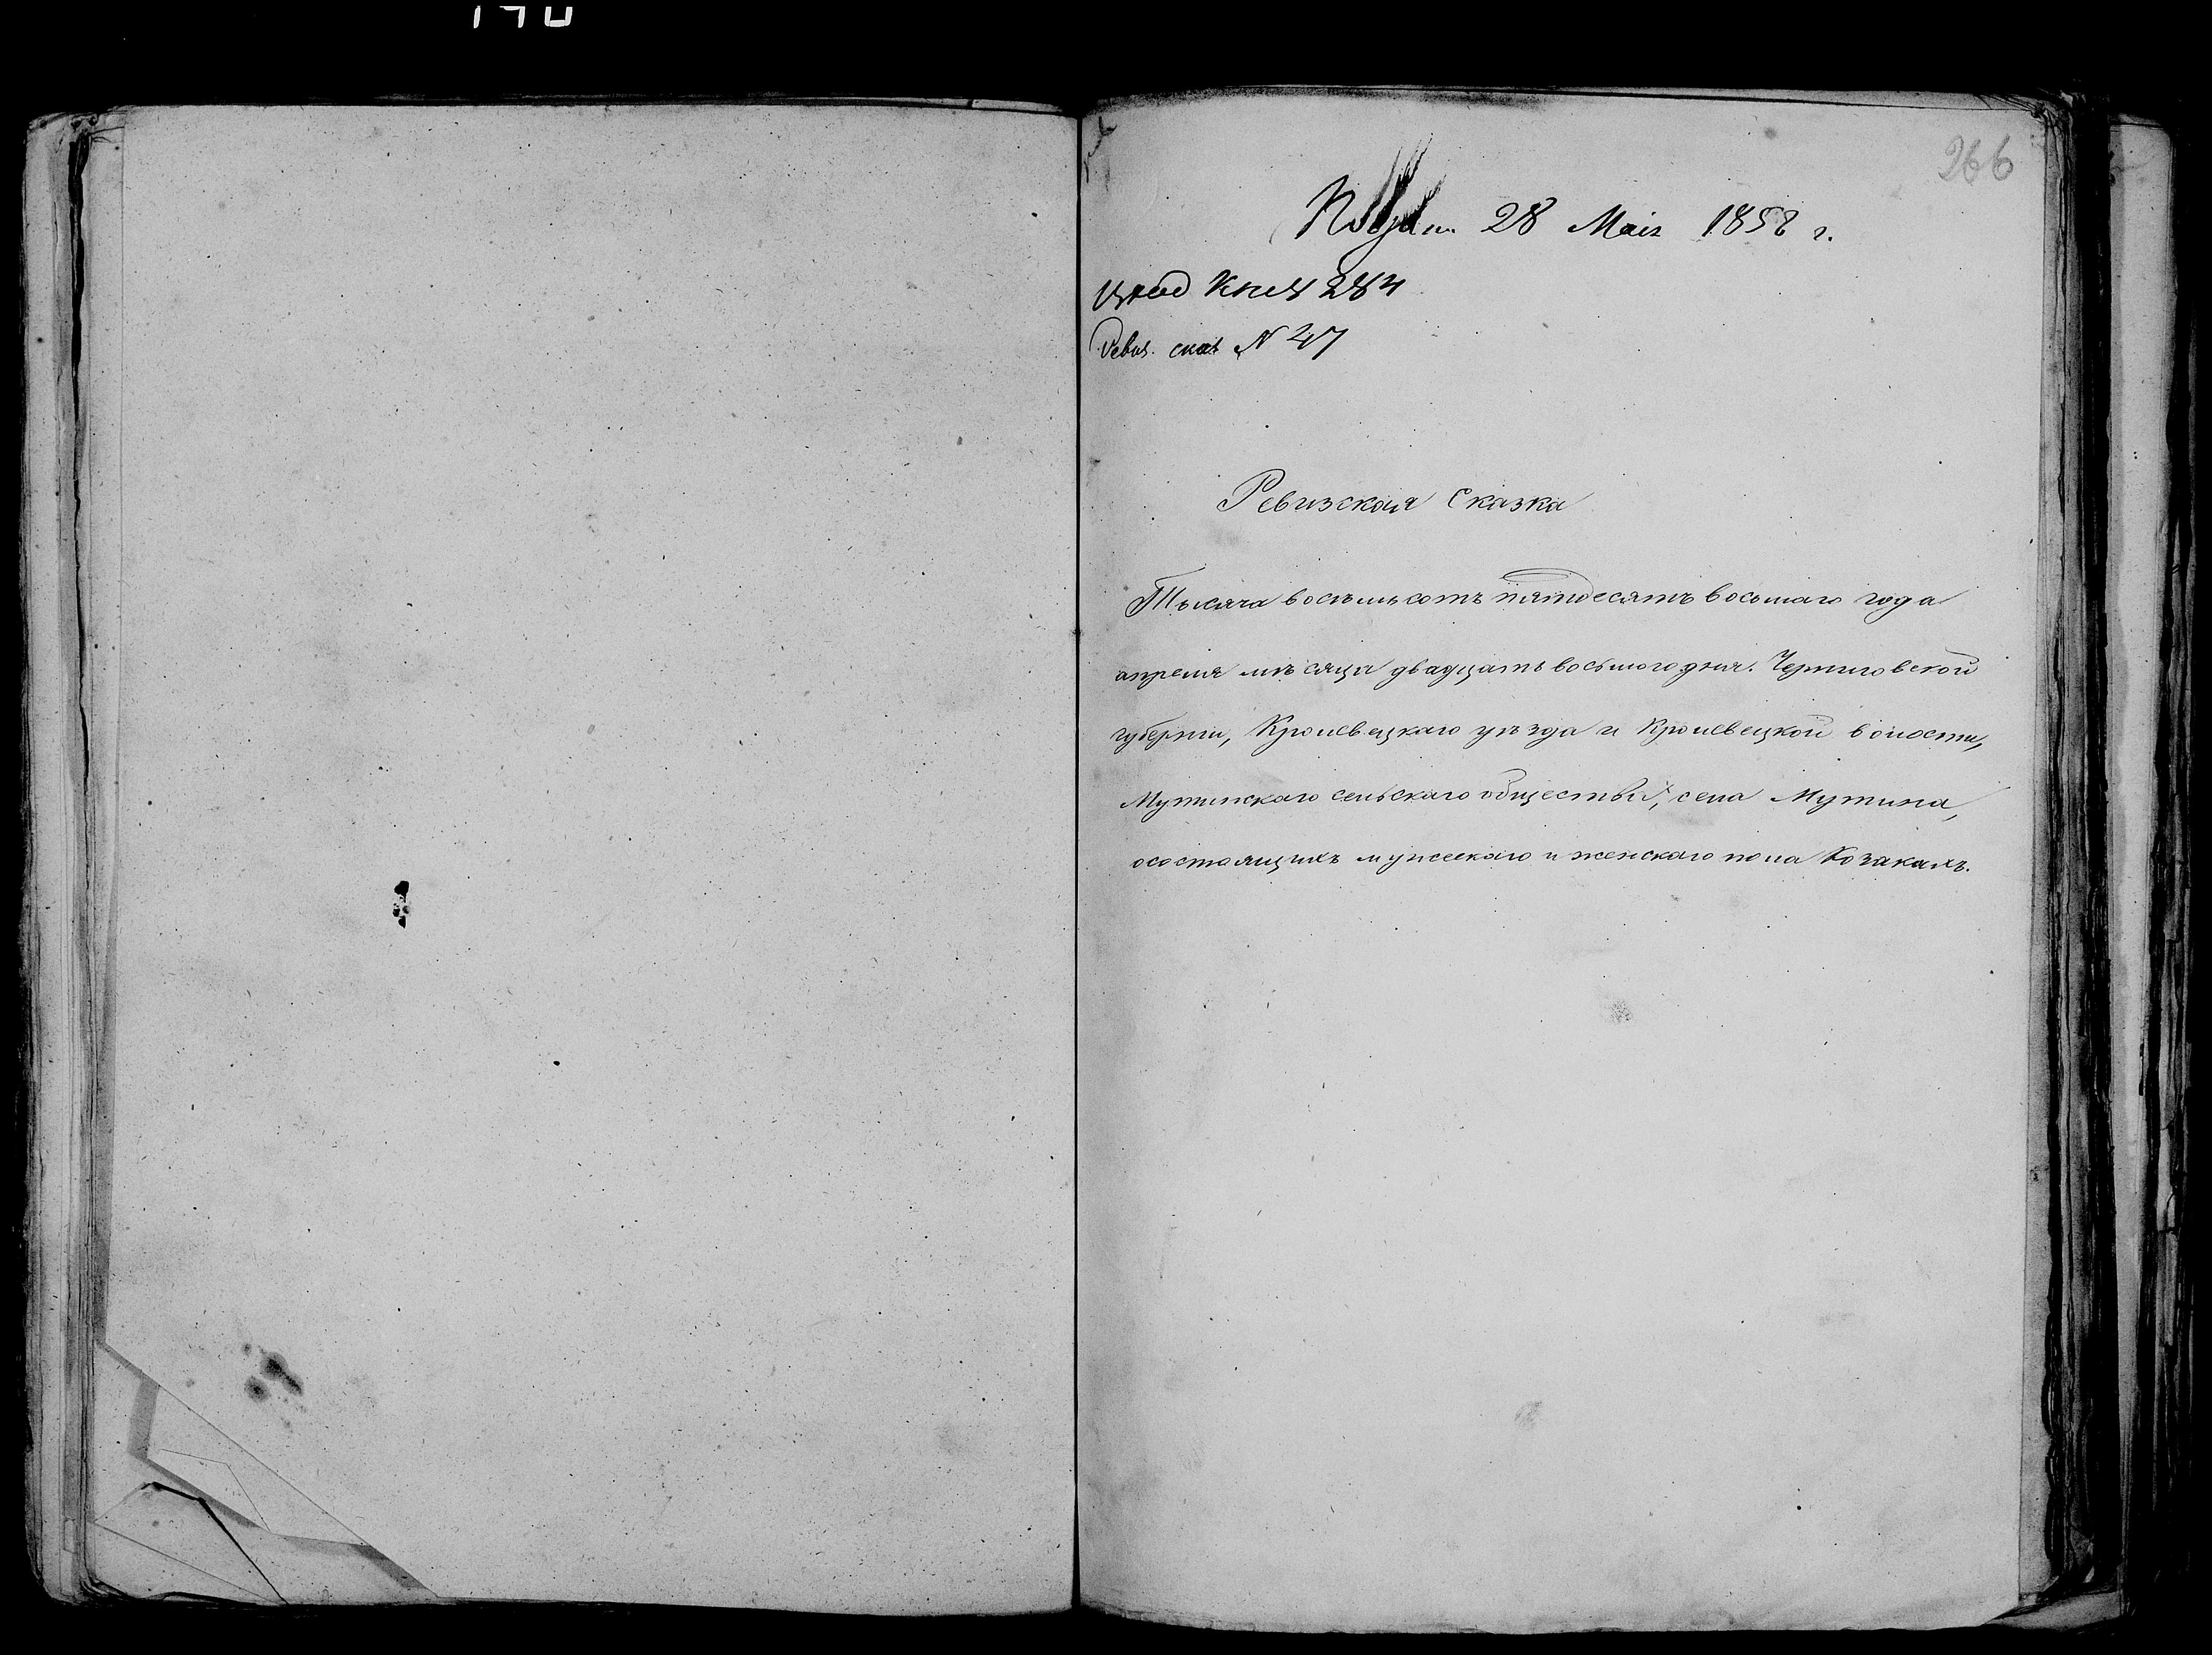 266
28 Мая 1858 г.
Ревиз. сказ. № 47
Ревизская Сказка
Тысяча восемьсотъ пятдесятъ восьмаго года
апреля мѣсяца двадцать восьмого дня. Черниговской
губерніи, Кролевецкаго уѣзда и Кролевецкой волости,
Мутинскаго сельскаго общества, села Мутина,
осостоящихъ мужескаго и женскаго пола Козакахъ.